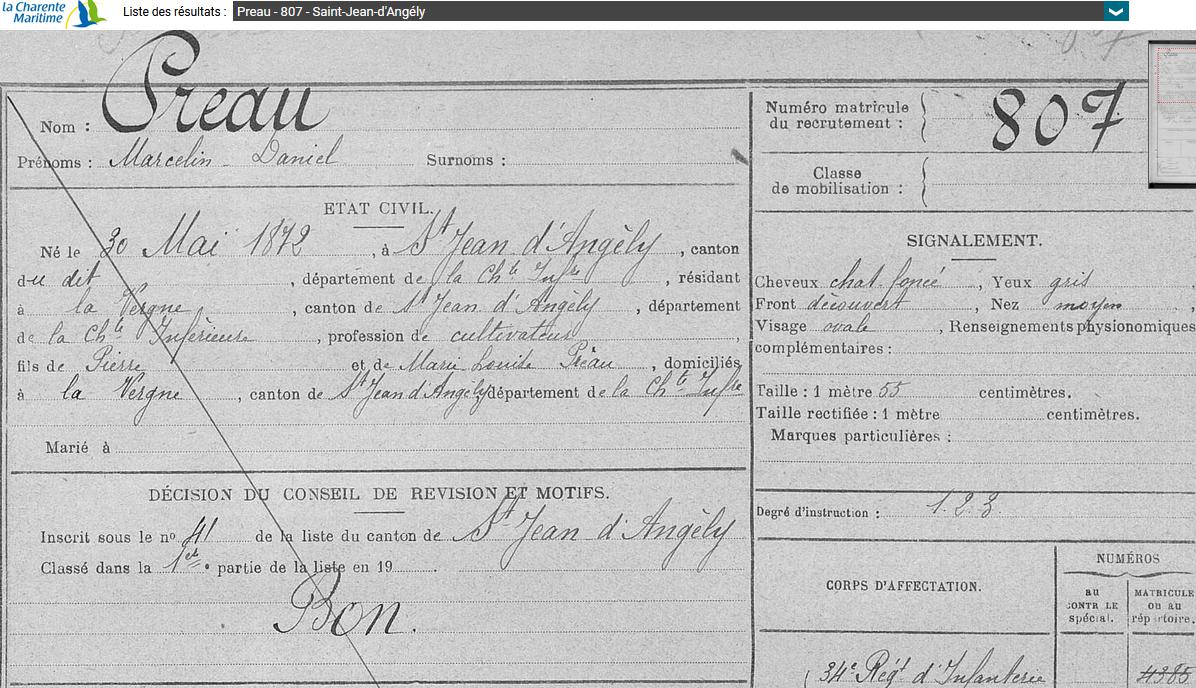 la Charente
Maritime
Liste des résultats :
Preau - 807 - Saint-Jean-d'Angély
Nom : Preau
Prénoms : Marcelin - Daniel Surnoms :
ETAT CIVIL.
Né le 30 Mai 1872, à St Jean d'Angély, canton
du dit, département de la Chte Infre, résidant
à la Vergne, canton de St Jean d'Angély, département
de la Chte Inférieure, profession de cultivateur
fils de Pierre et de Marie Louise Préau, domiciliés
à la Vergne, canton de St Jean d'Angély département de la Chte Infre
Marié à
DÉCISION DU CONSEIL DE REVISION ET MOTIFS.
Inscrit sous le no 41 de la liste du canton de St Jean d'Angély
Classé dans la 1ere partie de la liste en 19
Bon.
Numéro matricule
du recrutement : 807
Classe
de mobilisation :
SIGNALEMENT.
Cheveux chat. foncé, Yeux gris
Front découvert, Nez moyen,
Visage ovale, Renseignements physionomiques
complémentaires :
Taille : 1 mètre 55 centimètres.
Taille rectifiée : 1 mètre centimètres.
Marques particulières :
Degré d'instruction : 1. 2. 3.
CORPS D'AFFECTATION.
NUMÉROS
au
CONTROLE
spécial.
MATRICULE
ou au
répertoire.
34e Régt d'Infanterie
4385